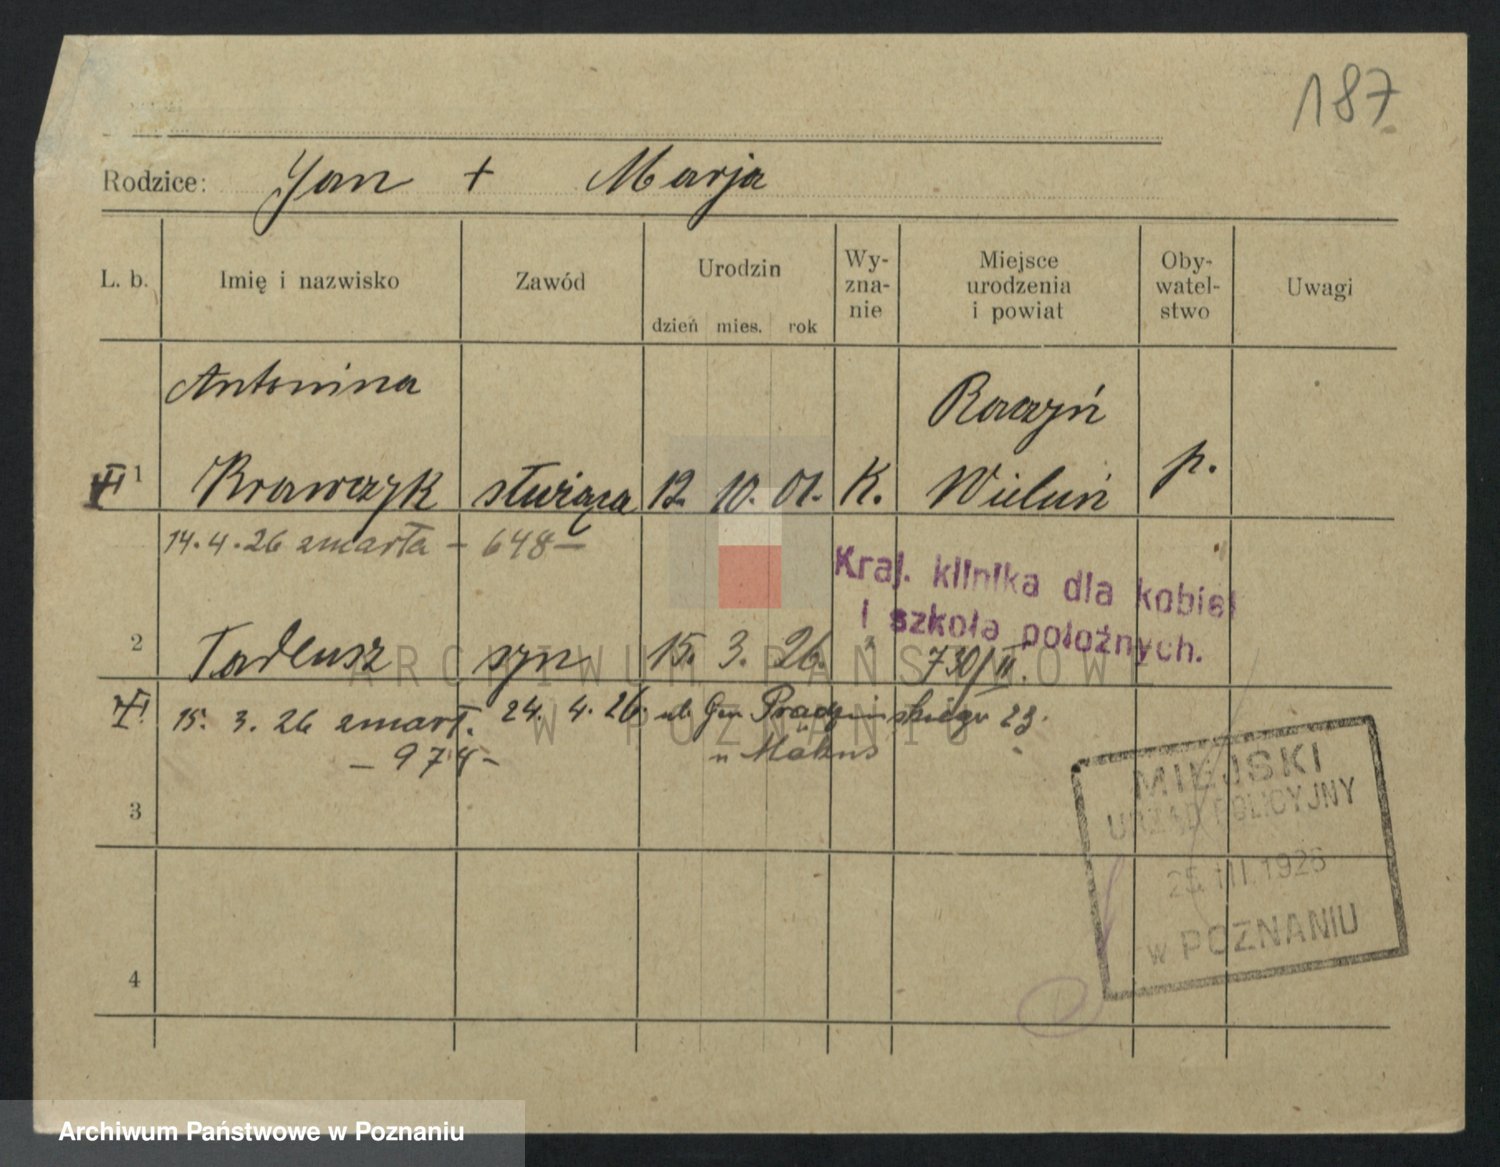 187
Rodzice: Jan + Marja
L. b. Imię i nazwisko Zawód Urodzin Wy-zna-nie Miejsce urodzenia i powiat Oby-watel-stwo Uwagi
dzień mies. rok
Antonina Raczyń
1 Krawczyk służąca 12. 10. 01. K. Wieluń p.
14.4.26 zmarła - 648 -
Kraj. klinika dla kobiet
i szkoła położnych.
2 Tadeusz syn 15. 3. 26. 730/II.
15. 3. 26 zmarł. 24. 4. 26. ul. Gen Prądzyńskiego 23.
- 974 - u
3
MIEJSKI
URZĄD POLICYJNY
25. III. 1926
w POZNANIU
4
ARCHIWUM PAŃSTWOWE
W POZNANIU
Archiwum Państwowe w Poznaniu